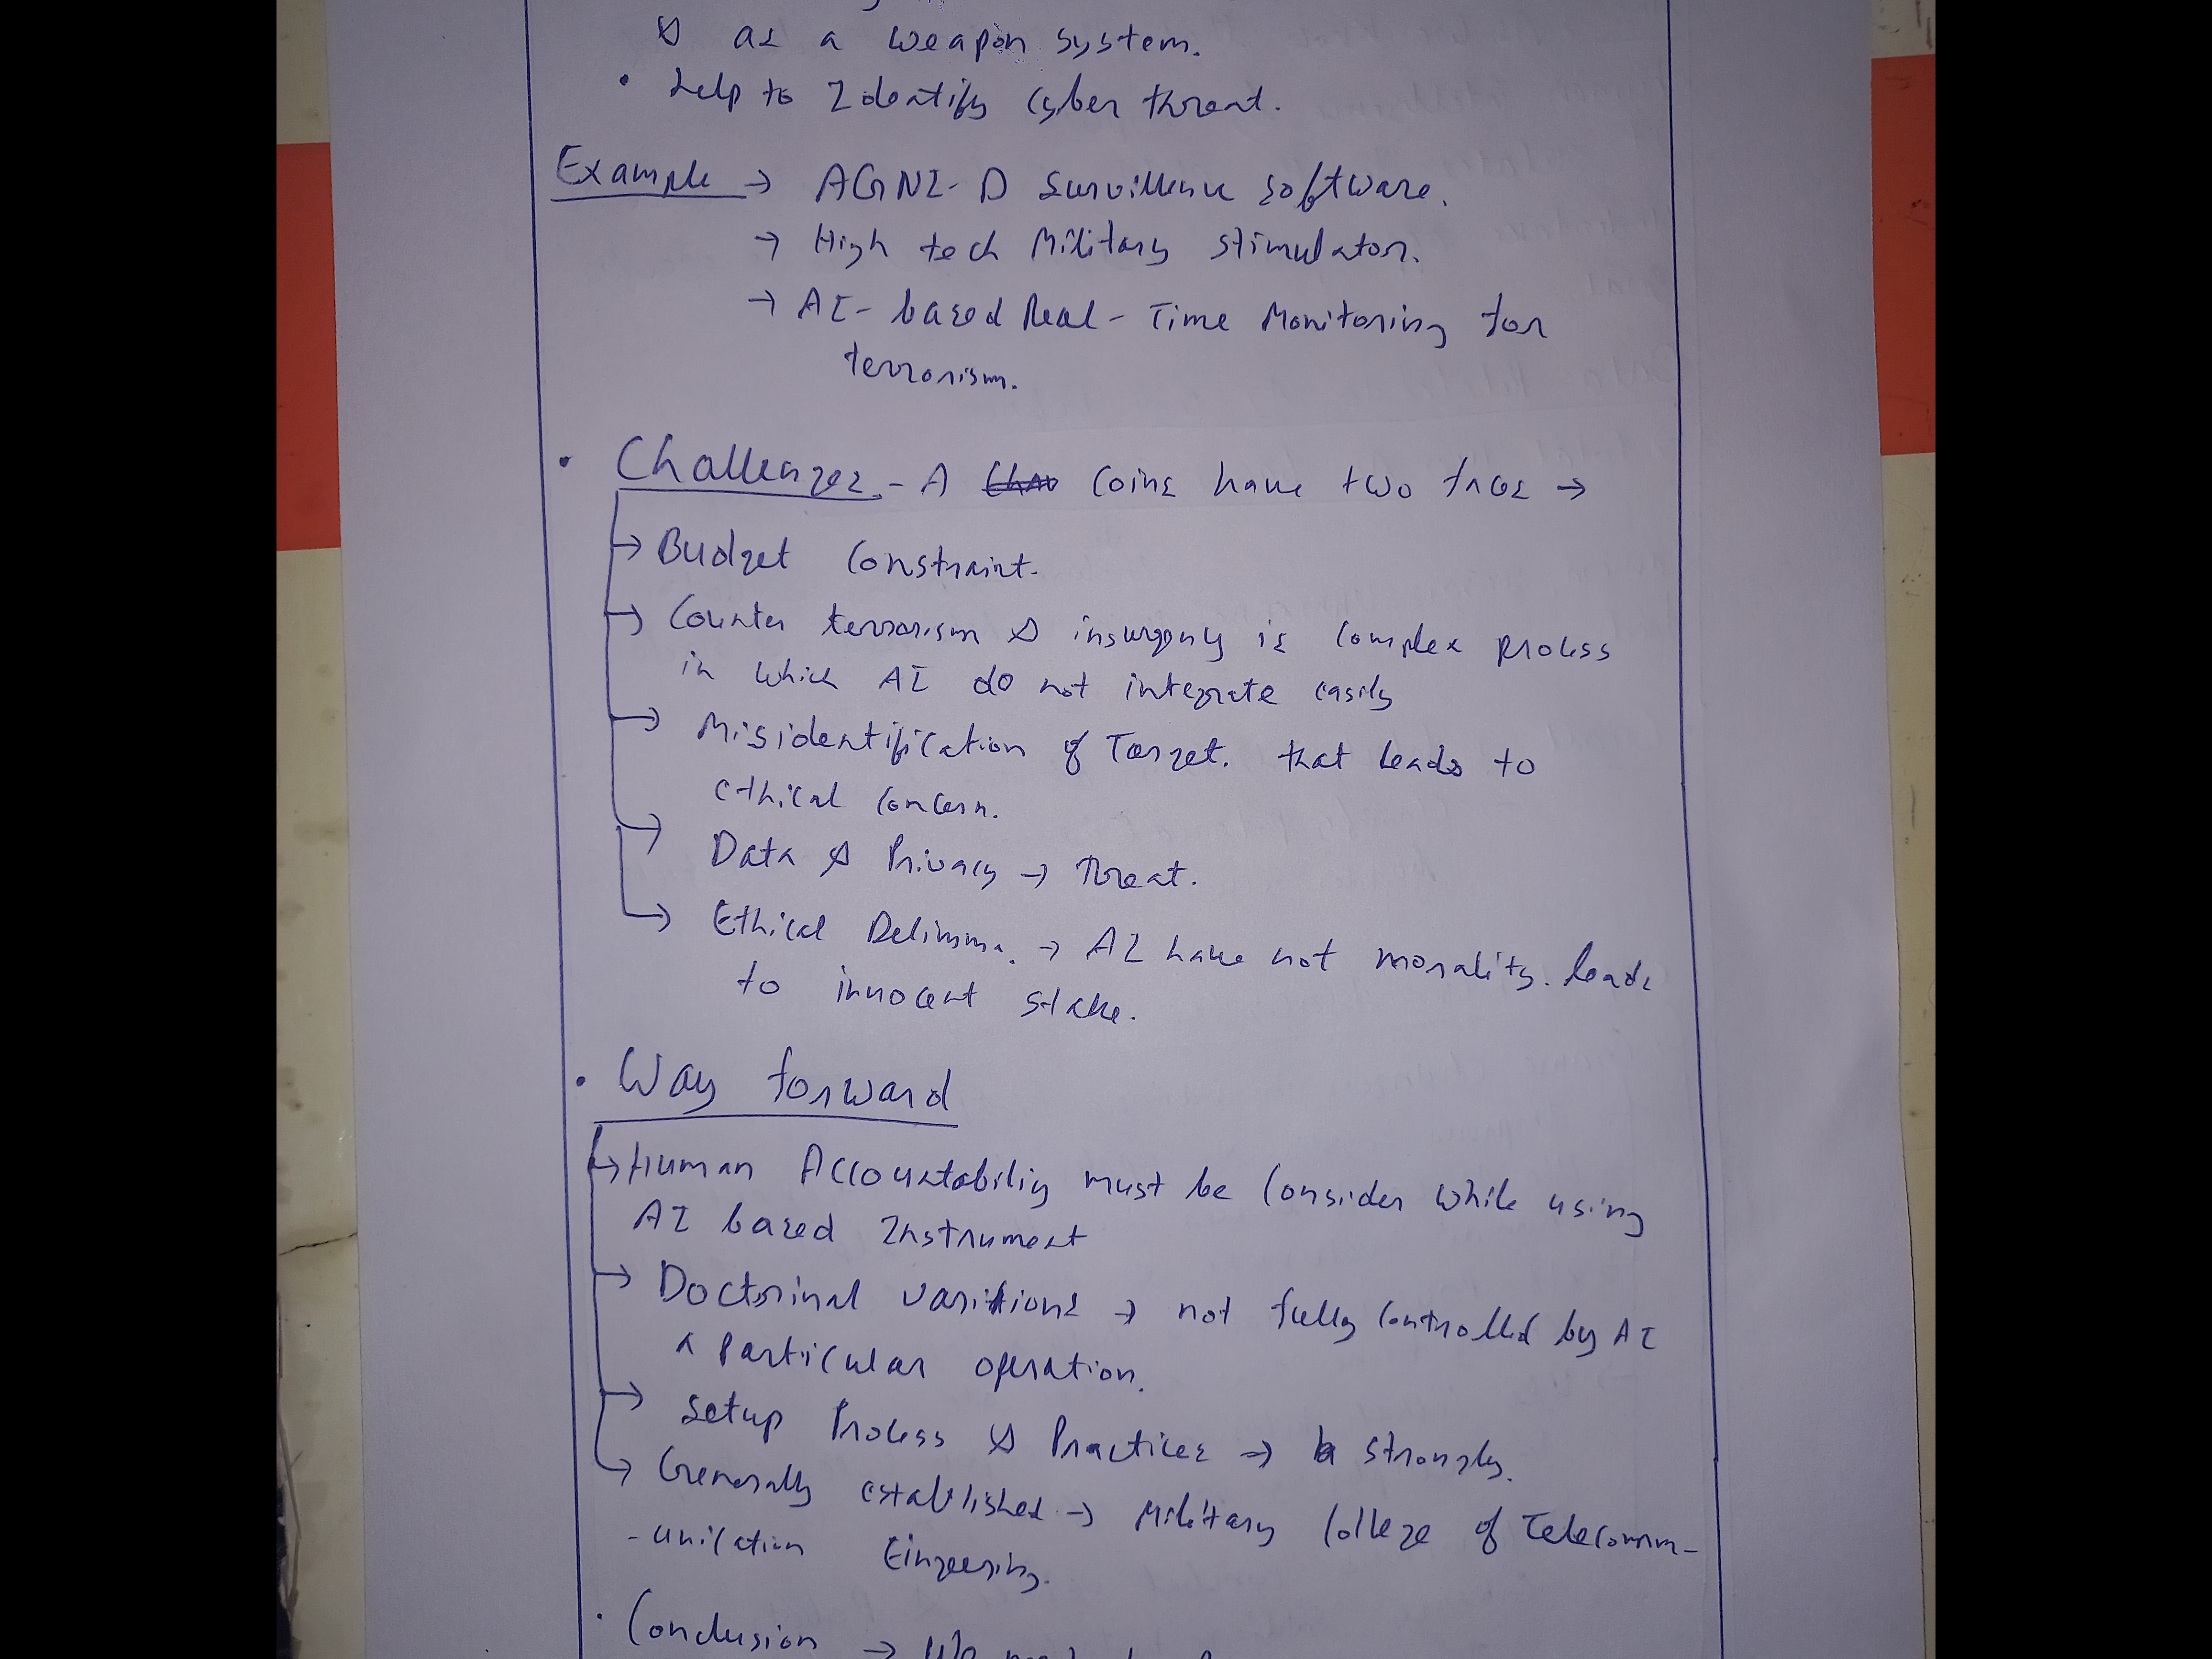 & as a weapon system.
• help to Identify cyber threat.
Example → AGNI-D Survillence software.
→ High tech Military stimulator.
→ AI-based Real-Time Monitoring for
terrorism.
• Challenges - A coins have two faces →
→ Budget constraint.
→ Counter terrorism & insurgency is complex process
in which AI do not integrate easily
→ Misidentification of Target. that leads to
ethical concern.
→ Data & Privacy → Threat.
→ Ethical Delimma. → AI have not morality. leads
to innocent stake.
• Way forward
→ Human Accountability must be consider while using
AI based Instrument
→ Doctrinal varitions → not fully controlled by AI
a particular operation.
→ Setup Process & Practices → strongly.
→ Generally established → Military College of Telecomm-
-unication Eingeering.
• Conclusion → We need to